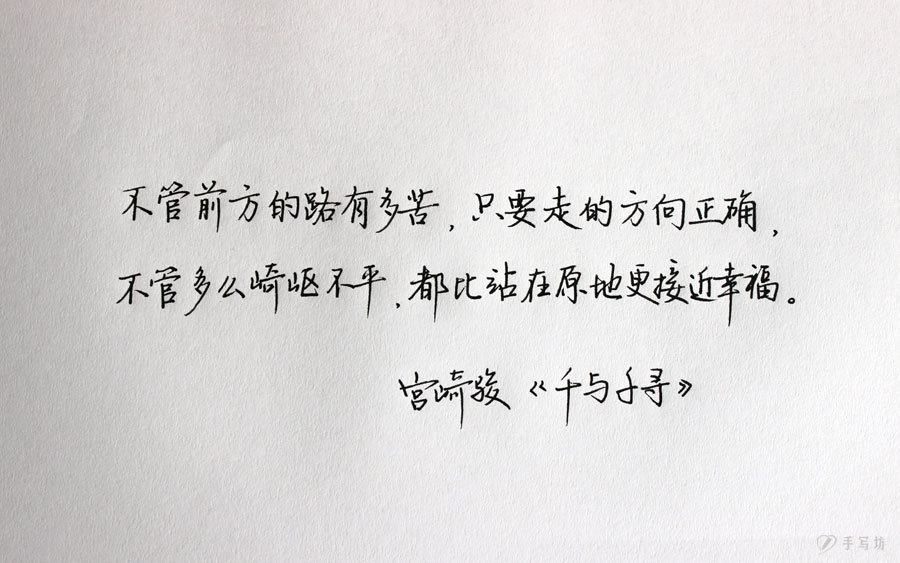 不管前方的路有多苦,只要走的方向正确,
不管多么崎岖不平,都比站在原地更接近幸福。
宫崎骏《千与千寻》
手写坊